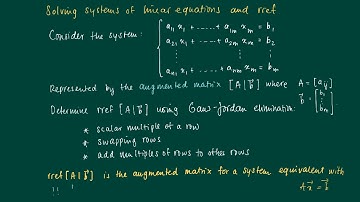 Solving systems of linear equations and rref
Consider the system: { a₁₁ x₁ + ...... + a₁ₘ xₘ = b₁
a₂₁ x₁ + ...... + a₂ₘ xₘ = b₂
⋮ ⋮ ⋮
aₙ₁ x₁ + ...... + aₙₘ xₘ = bₙ
Represented by the augmented matrix [A|b⃗] where A = [aᵢⱼ]
Determine rref [A|b⃗] using Gauss-Jordan elimination:
* scalar multiple of a row
* swapping rows
* add multiples of rows to other rows
rref[A|b⃗] is the augmented matrix for a system equivalent with
!! Ax⃗ = b⃗